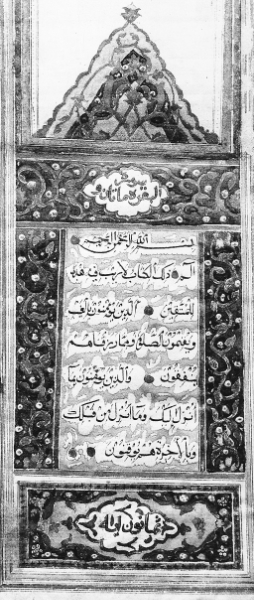 سورة البقرة مائتان و
بسم الله الرحمن الرحيم
الم ذلك الكتاب لا ريب فيه هدى
للمتقين الذين يؤمنون بالغيب
ويقيمون الصلوة ومما رزقناهم
ينفقون والذين يؤمنون بما
انزل اليك وما انزل من قبلك
وبالاخرة هم يوقنون
ثمانون اية